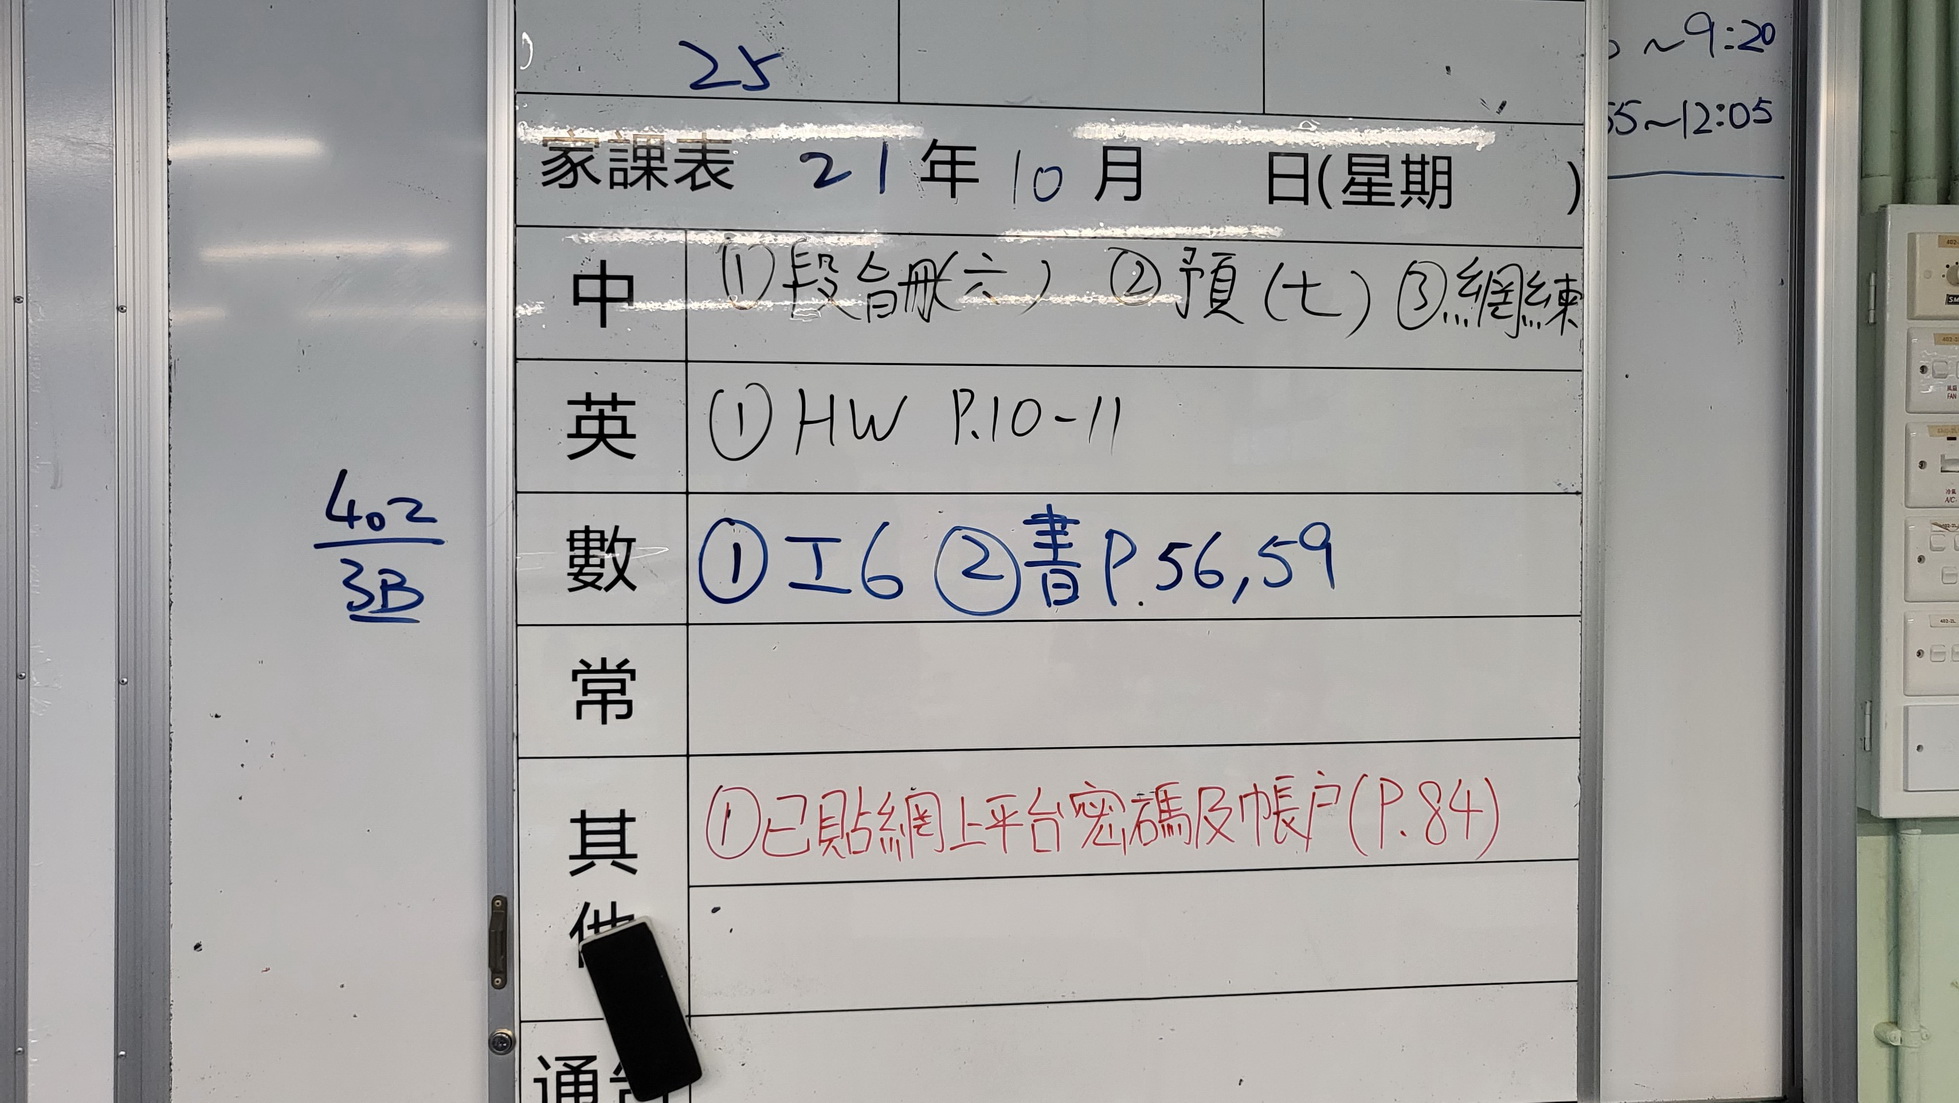 25
~9:20
55~12:05
家課表 21年10月 日(星期 )
中 ①段台冊(六) ②預(七) ③網練
英 ①HW P.10-11
數 ①工6 ②書P.56,59
402
3B
常
其他 ①已貼網上平台密碼及帳户(P.84)
通告